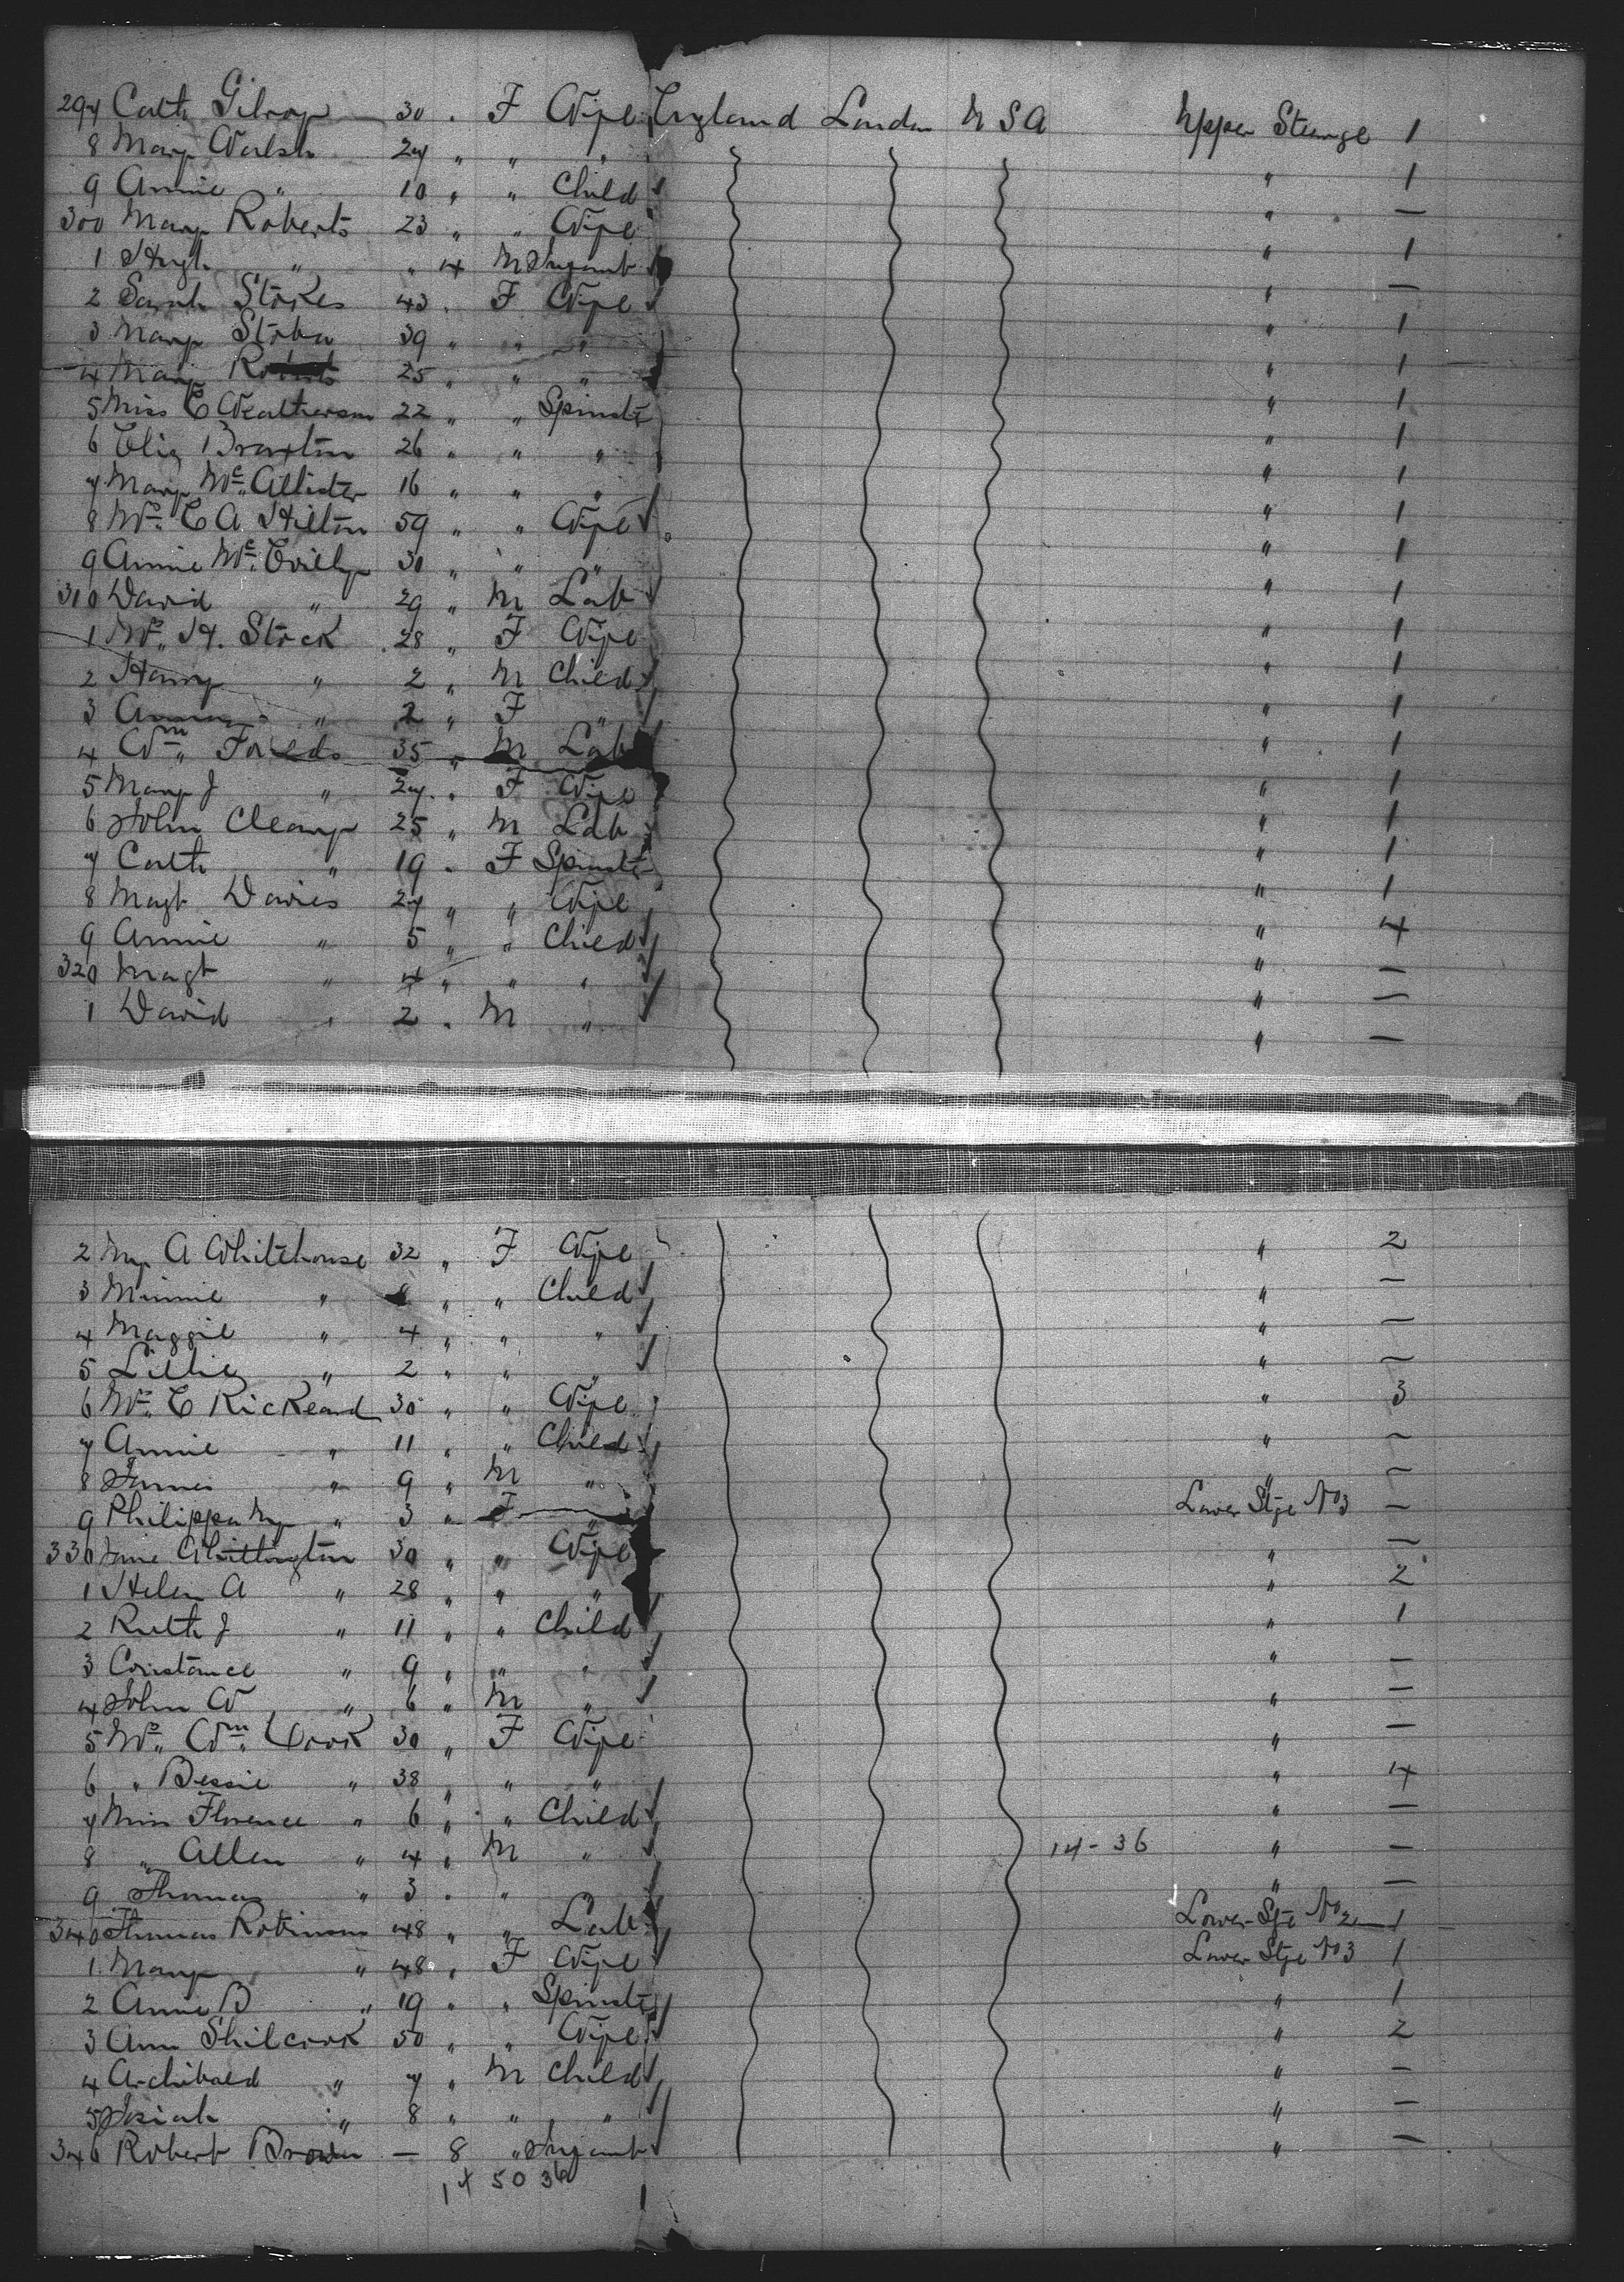 297 Cath Gilroy 30 . F Wife England London U S A Upper Steerage 1
8 Mary Walsh 27 " " " " 1
9 Annie " 10 " " Child " —
300 Mary Roberts 23 " " Wife " 1
1 Hugh " " 4 M Infant " —
2 Sarah Stokes 43 . F Wife " 1
3 Mary 39 " " " " 1
4 Mary 25 " " " " 1
5 Miss C 22 " " Spinstr " 1
6 Eliz Braxton 26 " " " " 1
7 Mary Mc Allister 16 " " " " 1
8 Mrs C A Hilton 59 " " Wife " 1
9 Annie Mc Evilly 30 " " " " 1
310 David " 29 " M Lab " 1
1 Mrs H. Stock 28 " F Wife " 1
2 Harry " 2 " M Child " 1
3 " 2 " F " " 1
4 Wm 35 " M Lab " 1
5 Mary J " 27 . F Wife " 1
6 John Cleary 25 " M Lab " 1
7 Cath " 19 . F Spinstr " 1
8 Magt Davies 27 " " Wife " 4
9 Annie " 5 " " Child " —
320 Magt " 4 " " " " —
1 David " 2 . M " " —
2 My A Whitehouse 32 " F Wife " 2
3 Minnie " " " Child " —
4 Maggie " 4 " " " " —
5 Lillie " 2 " " " " —
6 Mrs E Rickeard 30 " " Wife " 3
7 Annie " 11 " " Child " —
8 James " 9 " M " " —
9 Philippa My " 3 " F " Lower Stge No 3 —
330 Jane Whittington 30 " " Wife " —
1 Helen A " 28 " " " " 2
2 Ruth J " 11 " " Child " 1
3 Constance " 9 " " " " —
4 John W " 6 " M " " —
5 Mrs Wm Cook 30 " F Wife " —
6 " Bessie " 38 " " " " 4
7 Miss Florence " 6 " " Child " —
8 " Allen " 4 " M " 14-36 " —
9 Thomas " 3 . " " —
340 Thomas Robinson 48 " " Lab Lower Stge No 2 1
1 Mary " 48 " F Wife Lower Stge No 3 1
2 Annie B " 19 " " Spinstr " 1
3 Ann Shilcook 50 " " Wife " 2
4 Archibald " 7 " M Child " —
5 Josiah " 8 " " " " —
346 Robert Brown — 8 " Infant " —
1 + 50 36